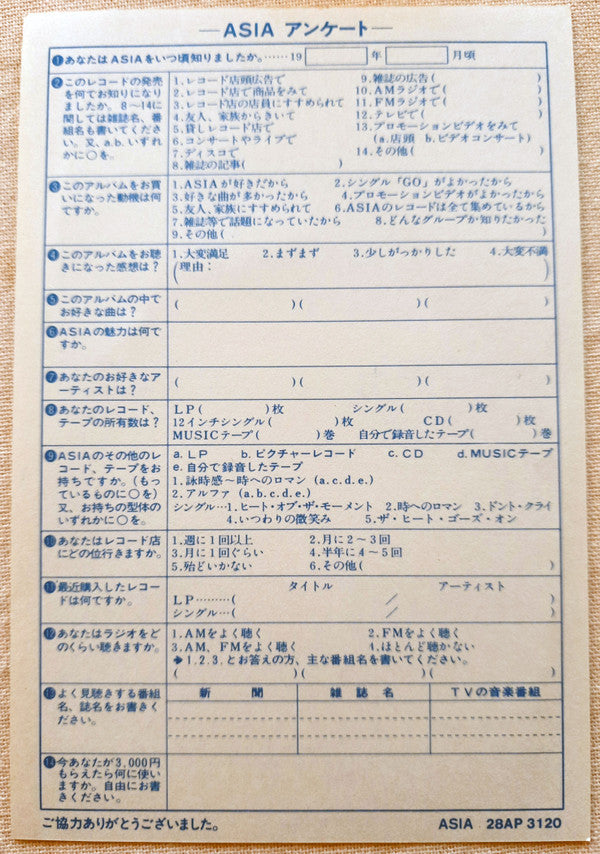 ASIA アンケート
❶あなたはASIAをいつ頃知りましたか。……19 年 月頃
❷このレコードの発売を何でお知りになりましたか。8〜14に関しては雑誌名、番組名も書いてください。又、a.b.いずれかに○を。
1.レコード店頭広告で 9.雑誌の広告( )
2.レコード店で商品をみて 10.AMラジオで( )
3.レコード店の店員にすすめられて 11.FMラジオで( )
4.友人、家族からきいて 12.テレビで( )
5.貸しレコード店で 13.プロモーションビデオをみて
6.コンサートやライブで (a.店頭 b.ビデオコンサート)
7.ディスコで 14.その他( )
8.雑誌の記事( )
❸このアルバムをお買いになった動機は何ですか。
1.ASIAが好きだから 2.シングル「GO」がよかったから
3.好きな曲が多かったから 4.プロモーションビデオがよかったから
5.友人、家族にすすめられて 6.ASIAのレコードは全て集めているから
7.雑誌等で話題になっていたから 8.どんなグループか知りたかった
9.その他( )
❹このアルバムをお聴きになった感想は?
1.大変満足 2.まずまず 3.少しがっかりした 4.大変不満
(理由: )
❺このアルバムの中でお好きな曲は?
( )( )( )
❻ASIAの魅力は何ですか。
❼あなたのお好きなアーティストは?
( )( )( )
❽あなたのレコード、テープの所有数は?
LP( )枚 シングル( )枚
12インチシングル( )枚 CD( )枚
MUSICテープ( )巻 自分で録音したテープ( )巻
❾ASIAのその他のレコード、テープをお持ちですか。(もっているものに○を)又、お持ちの型体のいずれかに○を。
a.LP b.ピクチャーレコード c.CD d.MUSICテープ
e.自分で録音したテープ
1.詠時感〜時へのロマン (a.c.d.e.)
2.アルファ (a.b.c.d.e.)
シングル…1.ヒート・オブ・ザ・モーメント 2.時へのロマン 3.ドント・クライ
4.いつわりの微笑み 5.ザ・ヒート・ゴーズ・オン
❿あなたはレコード店にどの位行きますか。
1.週に1回以上 2.月に2〜3回
3.月に1回ぐらい 4.半年に4〜5回
5.殆どいかない 6.その他( )
⓫最近購入したレコードは何ですか。
タイトル アーティスト
LP………( / )
シングル…( / )
⓬あなたはラジオをどのくらい聴きますか。
1.AMをよく聴く 2.FMをよく聴く
3.AM、FMをよく聴く 4.ほとんど聴かない
➔1.2.3.とお答えの方、主な番組名を書いてください。
( )( )( )
⓭よく見聴きする番組名、誌名をお書きください。
新聞 雑誌名 TVの音楽番組
⓮今あなたが3,000円もらえたら何に使いますか。自由にお書きください。
ご協力ありがとうございました。 ASIA 28AP 3120